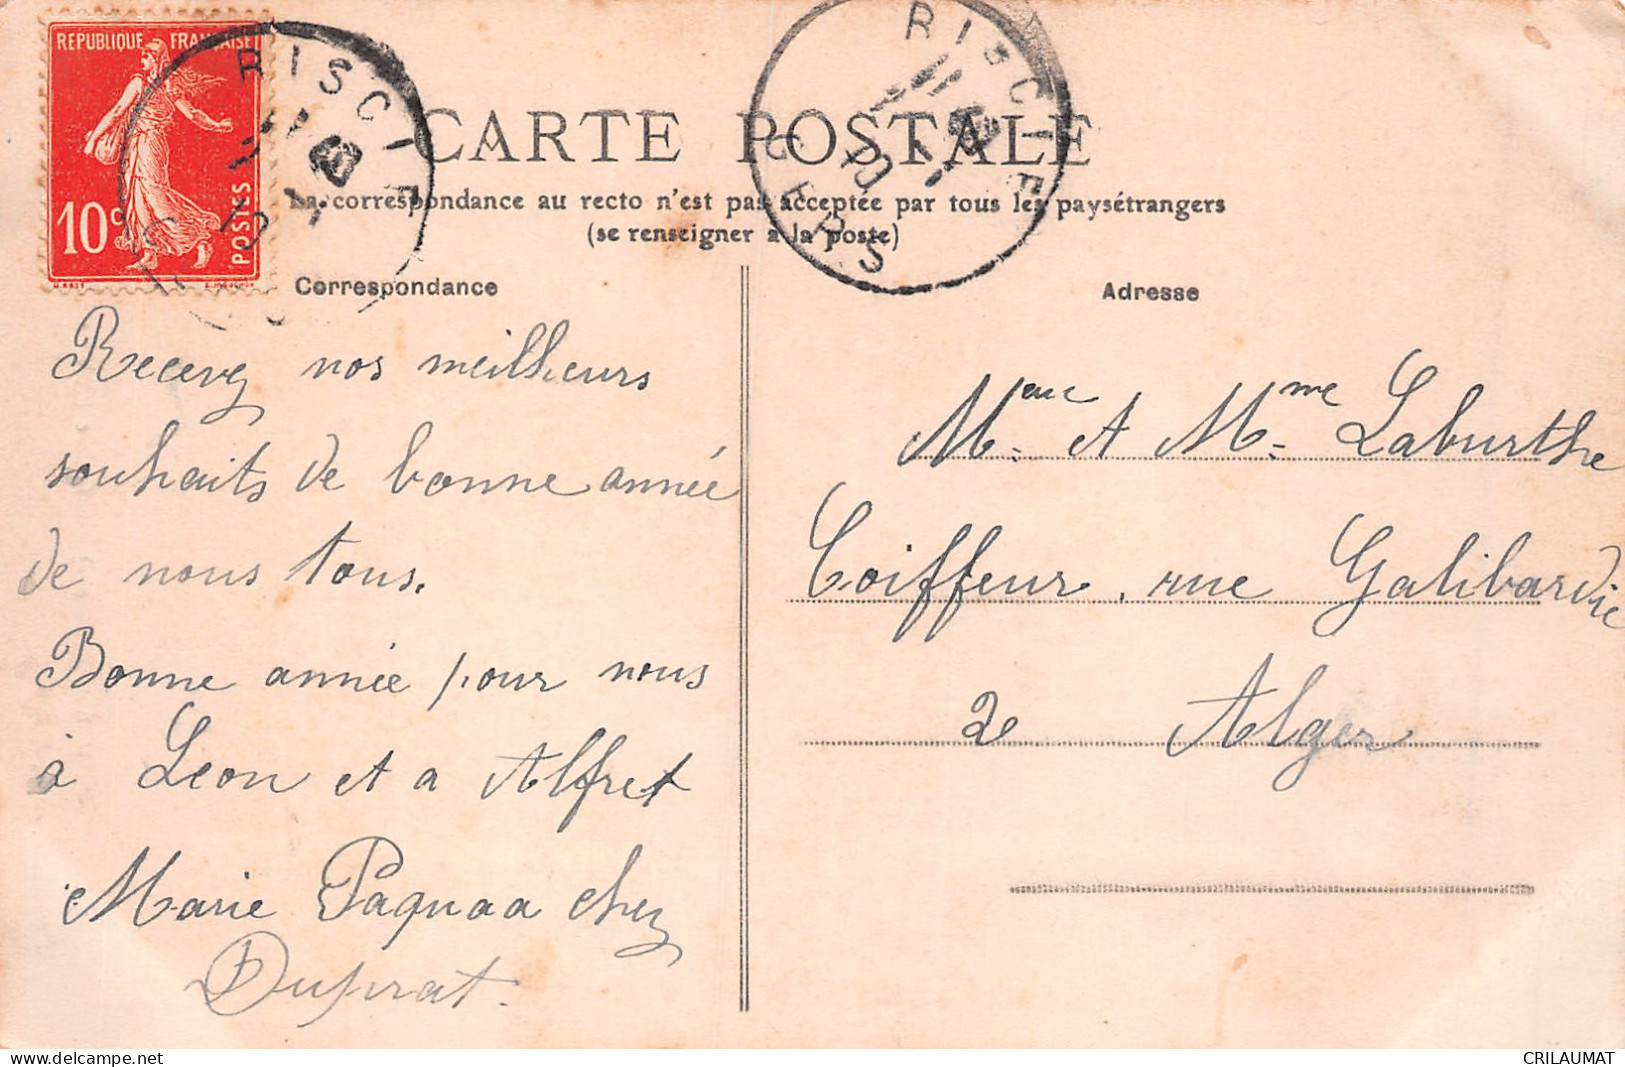 REPUBLIQUE FRANCAISE
10c
POSTES
RISCLE
10
RISCLE
10
GERS
CARTE POSTALE
La correspondance au recto n'est pas acceptée par tous les paysétrangers
(se renseigner à la poste)
Correspondance
Recevez nos meilheurs
souhaits de bonne année
de nous tous.
Bonne année pour nous
à Leon et a Alfret
Marie Paquaa chez
Duprat.
Adresse
et Mme Laburthe
Coiffeur, rue Galibardie
2e Alger
delcampe.net
CRILAUMAT